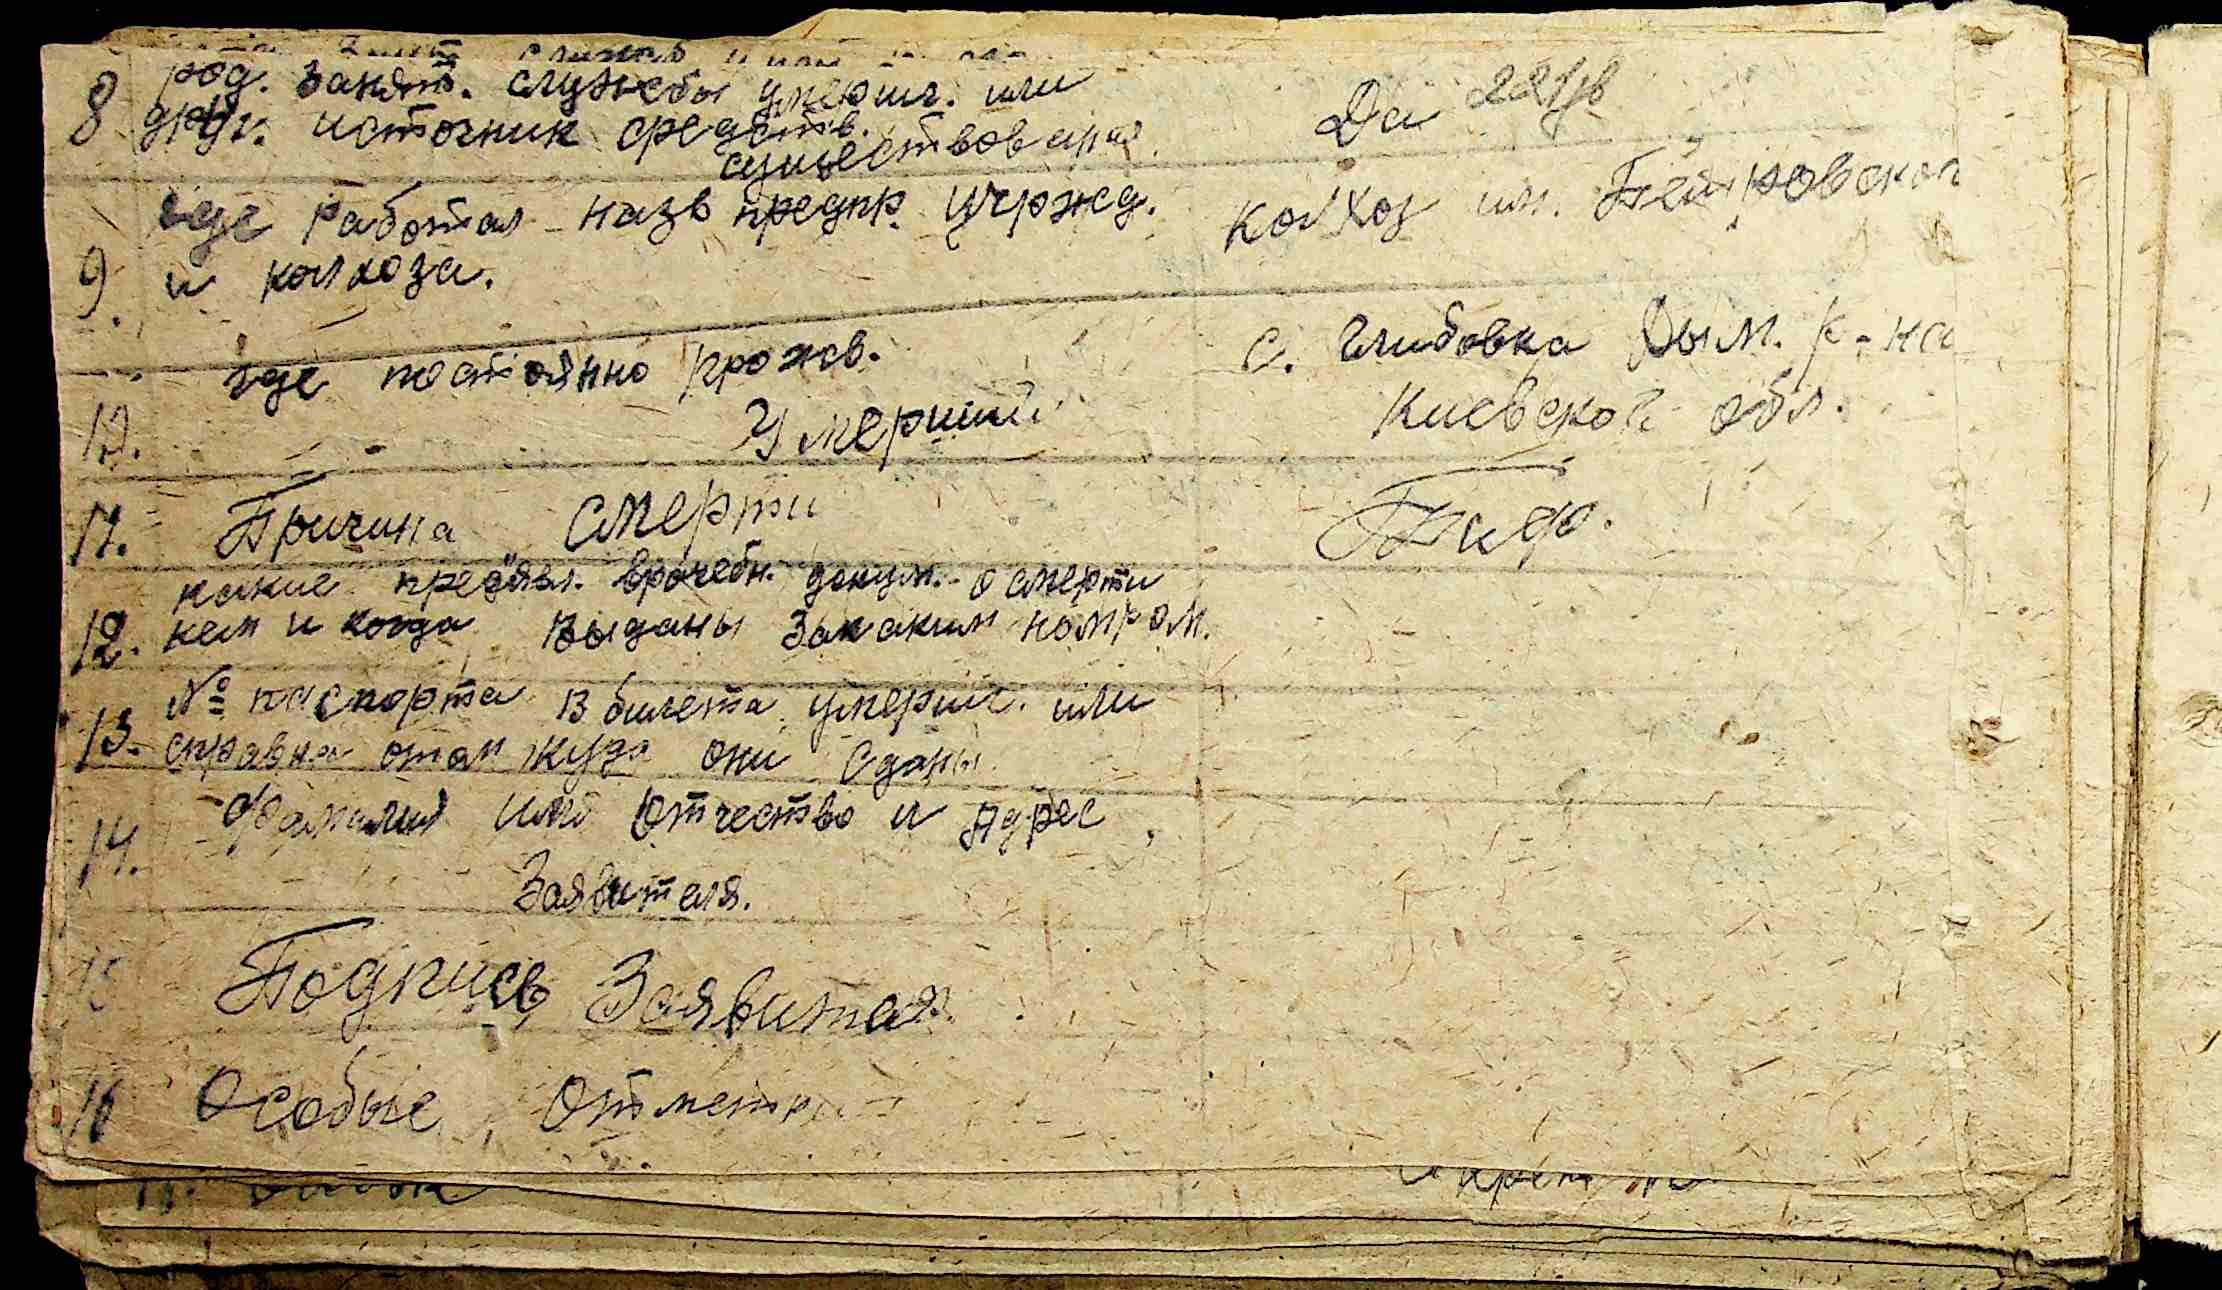 8 род. занят. службы умерш. или Да
друг. источник средств.
существования
где работал назв предпр. учржд. колхоз им. Петровского
9. и колхоза.
где постоянно прожв. с. Глибовка Дым. р-на
10. Умерший Киевской обл.
11. Причина смерти Тиф.
какие пред'явл. врачебн. докум. о смерти
12. кем и когда выданы закаким номром.
№ паспорта в билета умерш. или
13. справка отом куда они сданы
Фамилия имя Отчество и Адрес
14.
Заявителя.
15 Подпись Заявителя
16 Особые Отметки